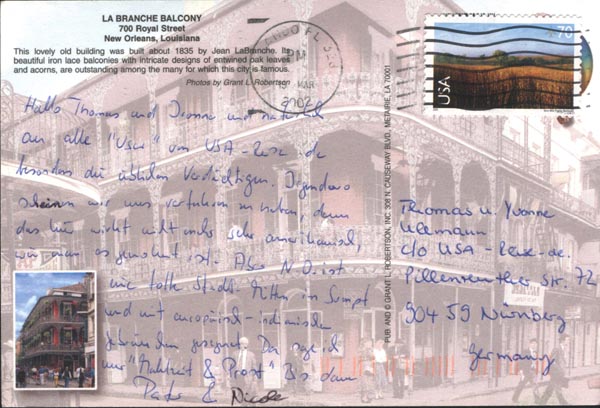 LA BRANCHE BALCONY
700 Royal Street
New Orleans, Louisiana
This lovely old building was built about 1835 by Jean LaBranche. Its
beautiful iron lace balconies with intricate designs of entwined oak leaves
and acorns, are outstanding among the many for which this city is famous.
Photos by Grant L. Robertson
Hallo Thomas und und natürlich
an alle "User" von USA-Reise.de
besonders die üblichen Verdächtigen. Irgendwo
scheinen wir uns verfahren zu haben, denn
das hier wirkt nicht mehr sehr amerikanisch,
wie man es gewohnt ist. Aber N.O. ist
eine tolle Stadt. Mitten im Sumpf
und mit europäisch-indianischen
gesegnet. Da sage ich
nur "Mahlzeit & Prost" Bis dann
&
Nicole
PM
MAR
2002
70
USA
PUB. AND © GRANT L. ROBERTSON, INC. 308 N. CAUSEWAY BLVD., METAIRIE, LA 70001
Thomas u. Yvonne
c/o USA-Reise.de
Pillenreuther Str. 72
90459 Nürnberg
Germany